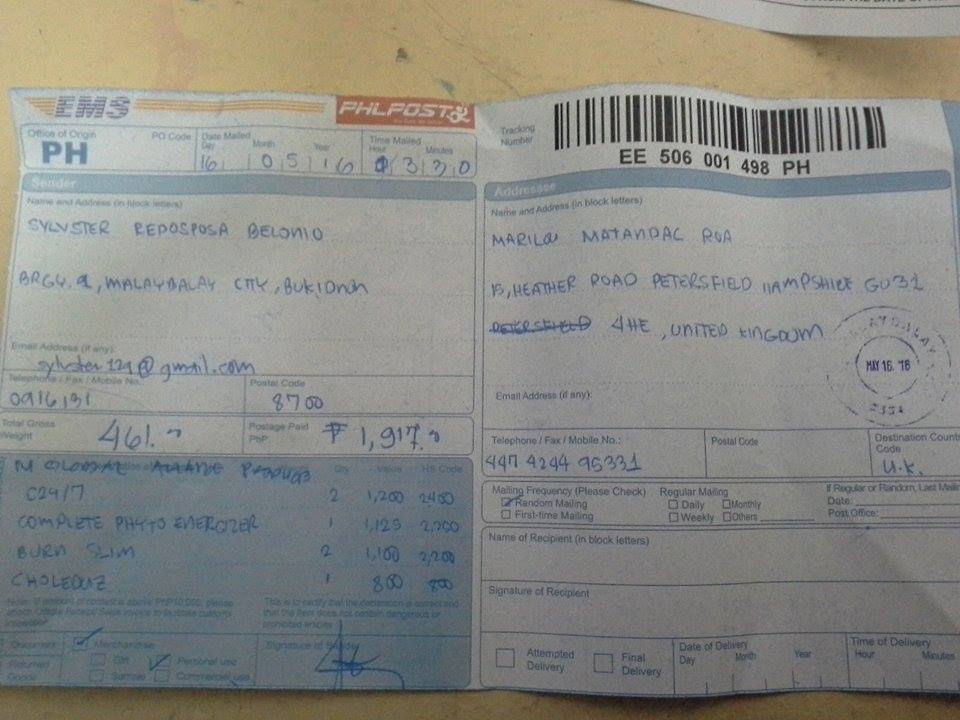 EMS
PHLPOST
Office of Origin
PH
PO Code
Date Mailed
Day Month Year
16 05 16
Time Mailed
Hour Minutes
1330
Tracking Number
EE 506 001 498 PH
Sender
Name and Address (in block letters)
SYLVSTER REPOSPOSA BELONIO
BRGY. 9, MALAYBALAY CITY, BUKIDNON
Email Address (if any):
sylvster129@gmail.com
Telephone / Fax / Mobile No.
0916131
Postal Code
8700
Total Gross Weight
461.
Postage Paid PhP
₱ 1,917.
Qty Value HS Code
C24/7 2 1,200 2400
COMPLETE PHYTO ENERGIZER 1 1,125
BURN SLIM 2 1,100 2,200
CHOLEDUZ 1 800 800
Note: If amount of content is above PHP10,000, please
This is to certify that the declaration is correct and
that the item does not contain dangerous or
prohibited articles
Document
Merchandise
Signature of Sender
Returned Goods
Gift
Personal use
Sample
Commercial use
Addressee
Name and Address (in block letters)
MARILOU MATANDAC ROA
15, HEATHER ROAD PETERSFIELD HAMPSHIRE GU31
PETERSFIELD 4HE, UNITED KINGDOM
MAY 16. '16
Email Address (if any):
Telephone / Fax / Mobile No.:
447 4244 95331
Postal Code
Destination Country Code
U.K.
Mailing Frequency (Please Check)
Random Mailing
First-time Mailing
Regular Mailing
Daily Monthly
Weekly Others
If Regular or Random, Last Mailing
Date:
Post Office:
Name of Recipient (in block letters)
Signature of Recipient
Attempted Delivery
Final Delivery
Date of Delivery
Day Month Year
Time of Delivery
Hour Minutes